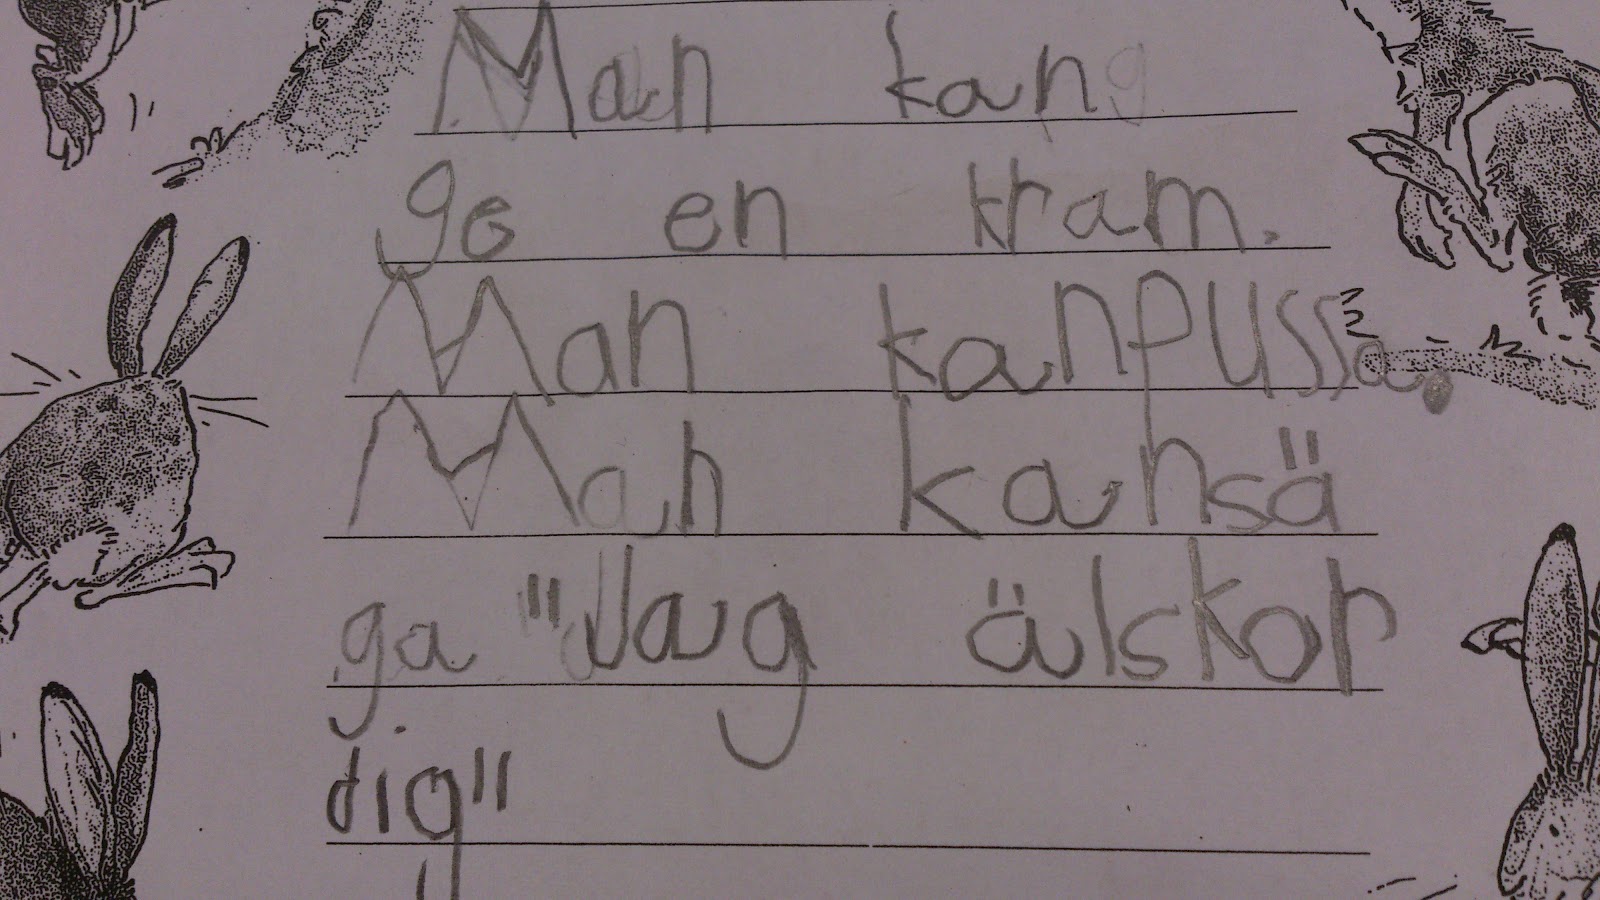 Man kan
ge en kram.
Man kan pussa.
Man kan sä
ga "Jag älskor
dig"